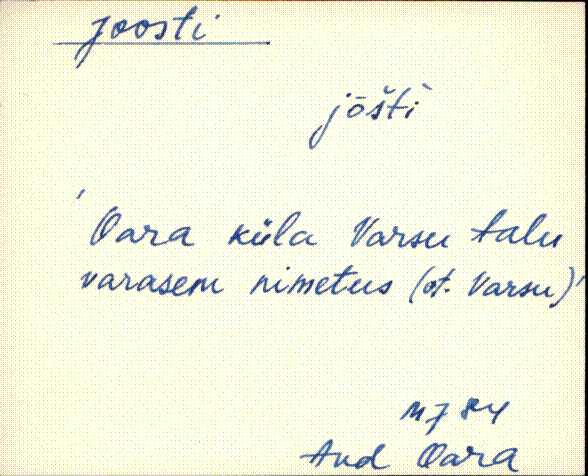 joosti
jōšti
'Oara küla Varsu talu
varasem nimetus (vt. Varsu)'
MJ 84
Aud Oara